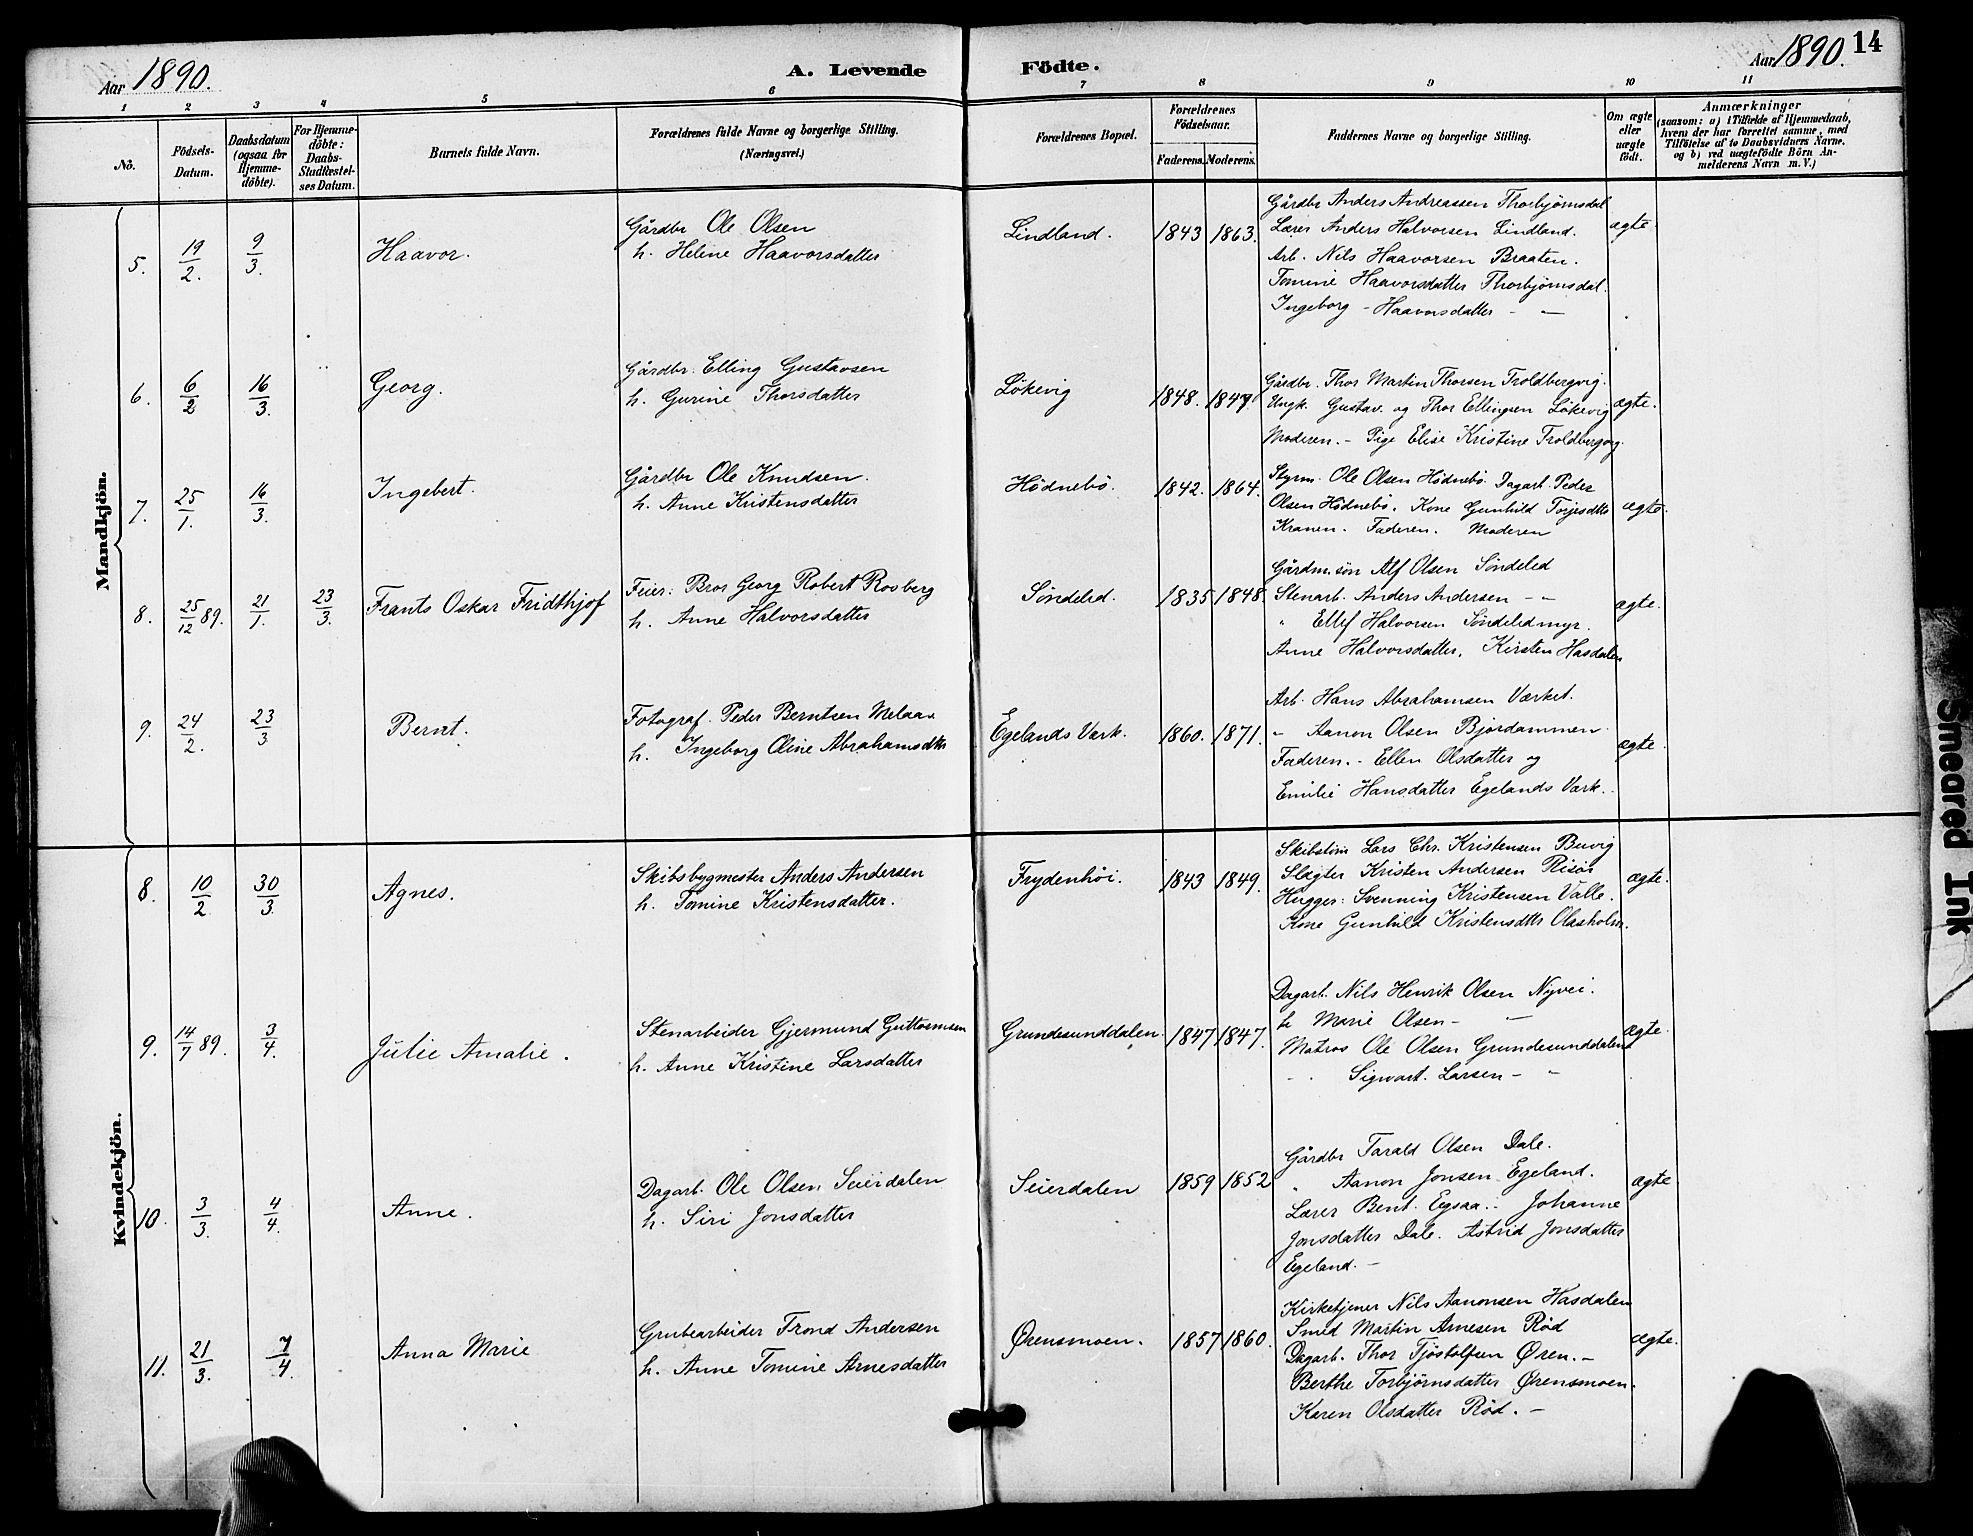 Aar 1890.
A. Levende Födte.
Aar 1890. 14
1 2 3 4 5 6 7 8 9 10 11
No.
Födsels-Datum.
Daabsdatum (ogsaa for Hjemme-döbte).
For Hjemme-döbte: Daabs-Stadfæstel-ses Datum.
Barnets fulde Navn.
Forældrenes fulde Navne og borgerlige Stilling. (Næringsvei.)
Forældrenes Bopæl.
Forældrenes Födselsaar.
Faderens. Moderens.
Faddernes Navne og borgerlige Stilling.
Om ægte eller uægte födt.
Anmærkninger
(saasom: a) i Tilfælde af Hjemmedaab,
hvem der har forrettet samme, med
Tilföielse af to Daabsvidners Navne.
og b) ved uægtefödte Börn An-
melderens Navn m. V.)
Mandkjön.
5. 19/2. 9/3. Haavor.
Gårdbr Ole Olsen
h. Helene Haavorsdatter
Lindland. 1843 1863.
Gårdbr Anders Andreassen Thorbjörnsdal
Lærer Anders Halvorsen Lindland.
Arb. Nils Haavorsen Braaten.
Tomine Haavorsdatter Thorbjörnsdal.
Ingeborg - Haavorsdatter - "
ægte.
6. 6/2 16/3. Georg.
Gårdbr. Elling Gustavsen
h. Gurine Thorsdatter
Lökevig 1848.
Gårdbr. Thor Martin Thorsen Troldbergvig.
Ungk. Gustav. og Thor Ellingsen Lökevig
Moderen. - Pige Elise Kristine Troldbergvig.
ægte.
7. 25/1. 16/3. Ingebert.
Gårdbr Ole Knudsen.
h. Anne Kristensdatter
Hödnebö. 1842. 1864.
Styrm. Ole Olsen Hödnebö. Dagarb. Peder
Olsen Hödnebö. Kone Gunhild
Kranen. Faderen. Moderen
ægte.
8. 25/12 89. 21/1. 23/3. Frants Oskar Fridthjof
Feier: Bror Georg Robert Rosberg
h. Anne Halvorsdatter
Söndeled. 1835 1848.
Gårdm. sön Alf Olsen Söndeled
Stenarb. Anders Andersen - "
" Ellef Halvorsen Söndeledmyr.
Anne Halvorsdatter. Kirsten Hasdalen
ægte.
9. 24/2. 23/3 Bernt.
Fotograf. Peder Berntsen
h. Ingeborg Oline Abrahamsdtr
Egelands Værk. 1860. 1871.
Arb. Hans Abrahamsen Værket.
" Aanon Olsen Bjordammen
Faderen. - Ellen Olsdatter og
Emilie Hansdatter Egelands Værk.
ægte.
Kvindekjön.
8. 10/2. 30/3. Agnes.
Skibsbygmester Anders Andersen
h. Tomine Kristensdatter.
Frydenhöi. 1843 1849.
Skibstöm Lars Chr. Kristensen Buvig
Slagter Kristen Andersen Risör
Hugger: Svenning Kristensen Valle.
Kone Gunhild Kristensdtr Olasholm.
ægte.
9. 14/7 89. 3/4. Julie Amalie.
Stenarbeider Gjermund Guttormsen
h. Anne Kristine Larsdatter
Grundesunddalen. 1847 1847.
Dagarb. Nils Henrik Olsen Nyvei.
h Marie Olsen - "
Matros Ole Olsen Grundesunddalen
" Sigvart. Larsen - "
ægte.
10. 3/3. 4/4. Anne.
Dagarb. Ole Olsen Seierdalen
h. Siri Jonsdatter
Seierdalen 1859 1852
Gårdbr Tarald Olsen Dale.
" Aanon Jonsen Egeland.
Lærer Bent. Egsaa. - Johanne
Jonsdatter Dale. Astrid Jonsdatter
Egeland. -
ægte
11. 21/3. 7/4. Anna Marie
Grubearbeider Trond Andersen
h. Anne Tomine Arnesdatter
Ørensmoen. 1857 1860.
Kirketjener Nils Aanonsen Hasdalen
Smed Martin Arnesen Röd
Dagarb. Thor Tjöstolfsen Øren. -
Berthe Torbjörnsdatter Ørensmoen.
Karen Olsdatter Röd. -
ægte.
Smeared Ink